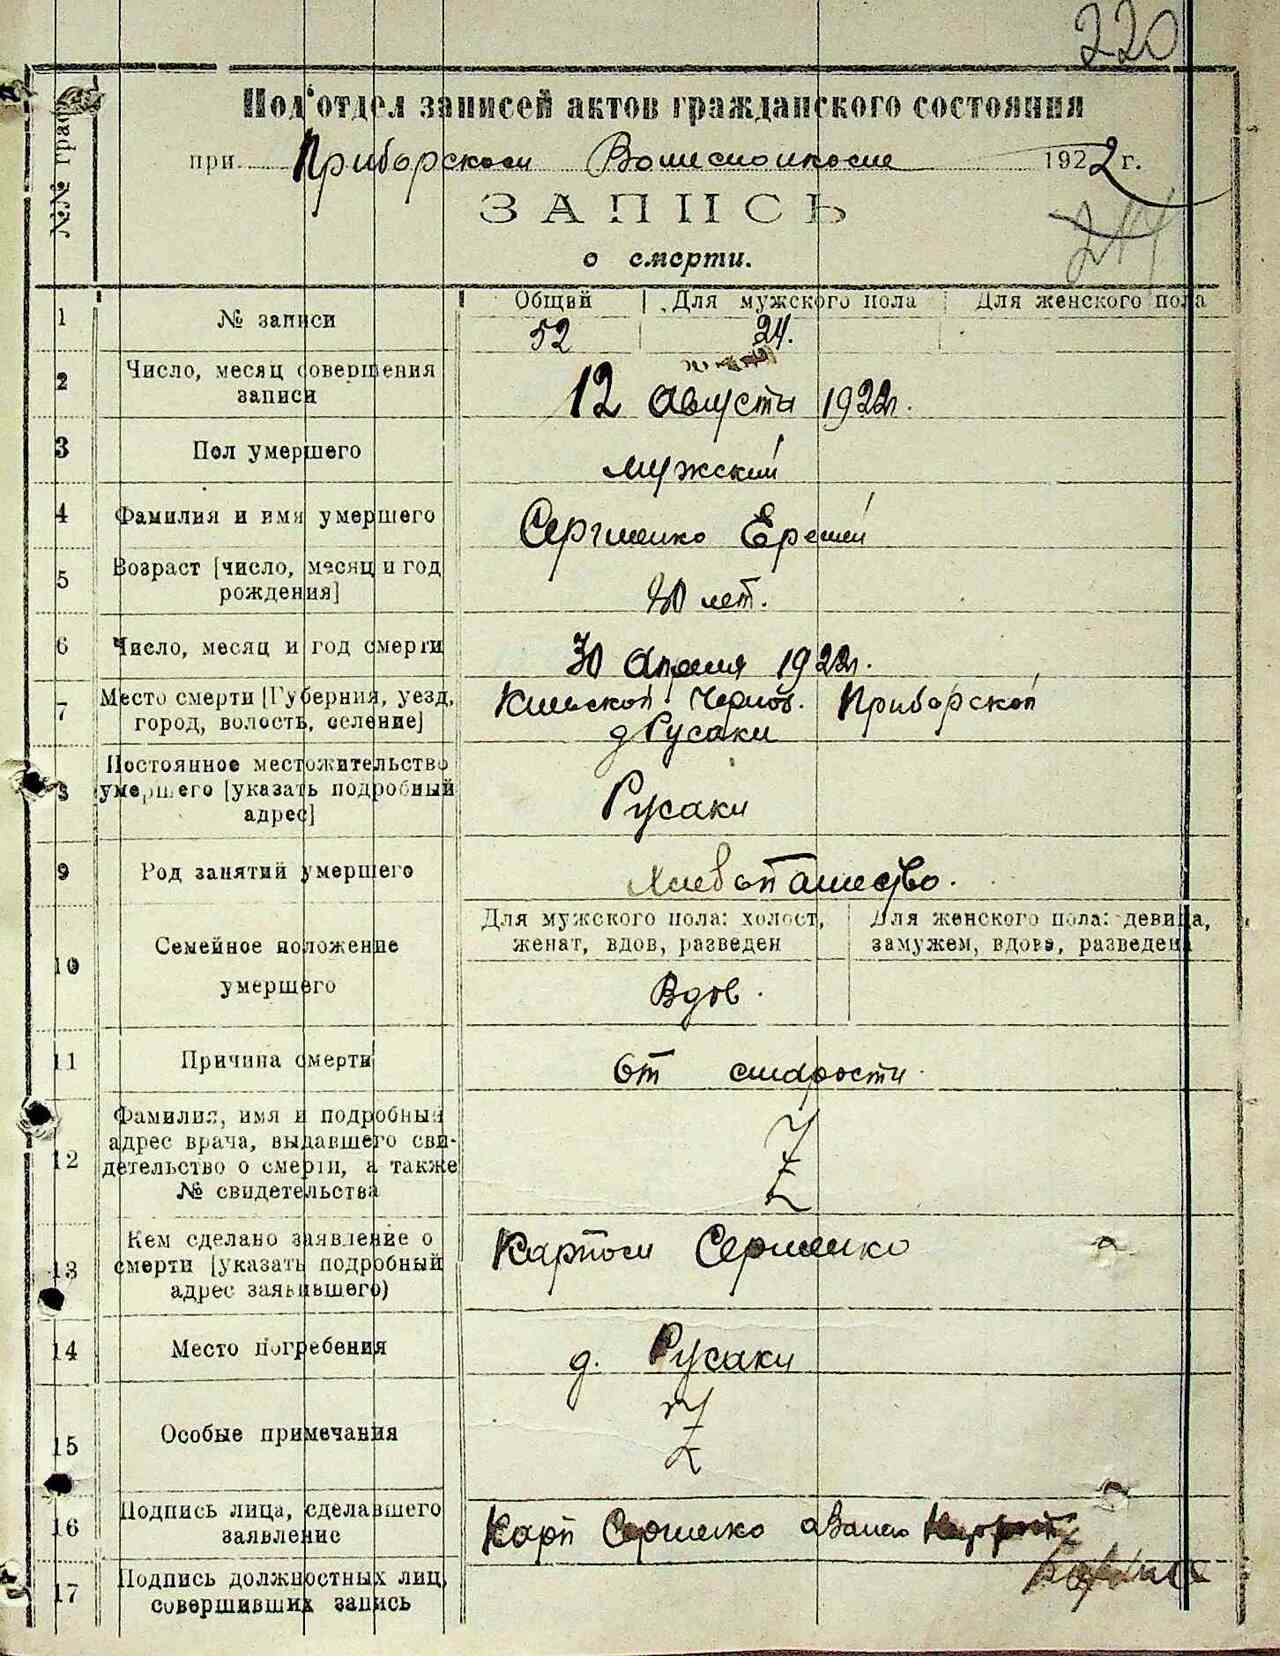 220
Под'отдел записей актов гражданского состояния
при Приборском Волисполкоме 1922 г.
ЗАПИСЬ
о смерти.
№№ граф
Общий Для мужского пола Для женского пола
1 № записи 52 24.
2 Число, месяц совершения
записи
12 Августа 1922 г.
3 Пол умершего мужский
4 Фамилия и имя умершего Сергиенко Еремей
5 Возраст [число, месяц и год
рождения]
80 лет.
6 Число, месяц и год смерти 30 Апреля 1922 г.
7 Место смерти [Губерния, уезд,
город, волость, селение]
Киевской Черноб. Приборской
д Русаки
8 Постоянное местожительство
умершего [указать подробный
адрес]
Русаки
9 Род занятий умершего Хлебопашество.
10 Семейное положение
умершего
Для мужского пола: холост,
женат, вдов, разведен
Для женского пола: девица,
замужем, вдова, разведена
Вдов.
11 Причина смерти От старости
12 Фамилия, имя и подробный
адрес врача, выдавшего сви-
детельство о смерти, а также
№ свидетельства
13 Кем сделано заявление о
смерти [указать подробный
адрес заявившего)
Карпом Сергиенко
14 Место погребения д. Русаки
15 Особые примечания
16 Подпись лица, сделавшего
заявление
Карп Сергиенко
17 Подпись должностных лиц,
совершивших запись